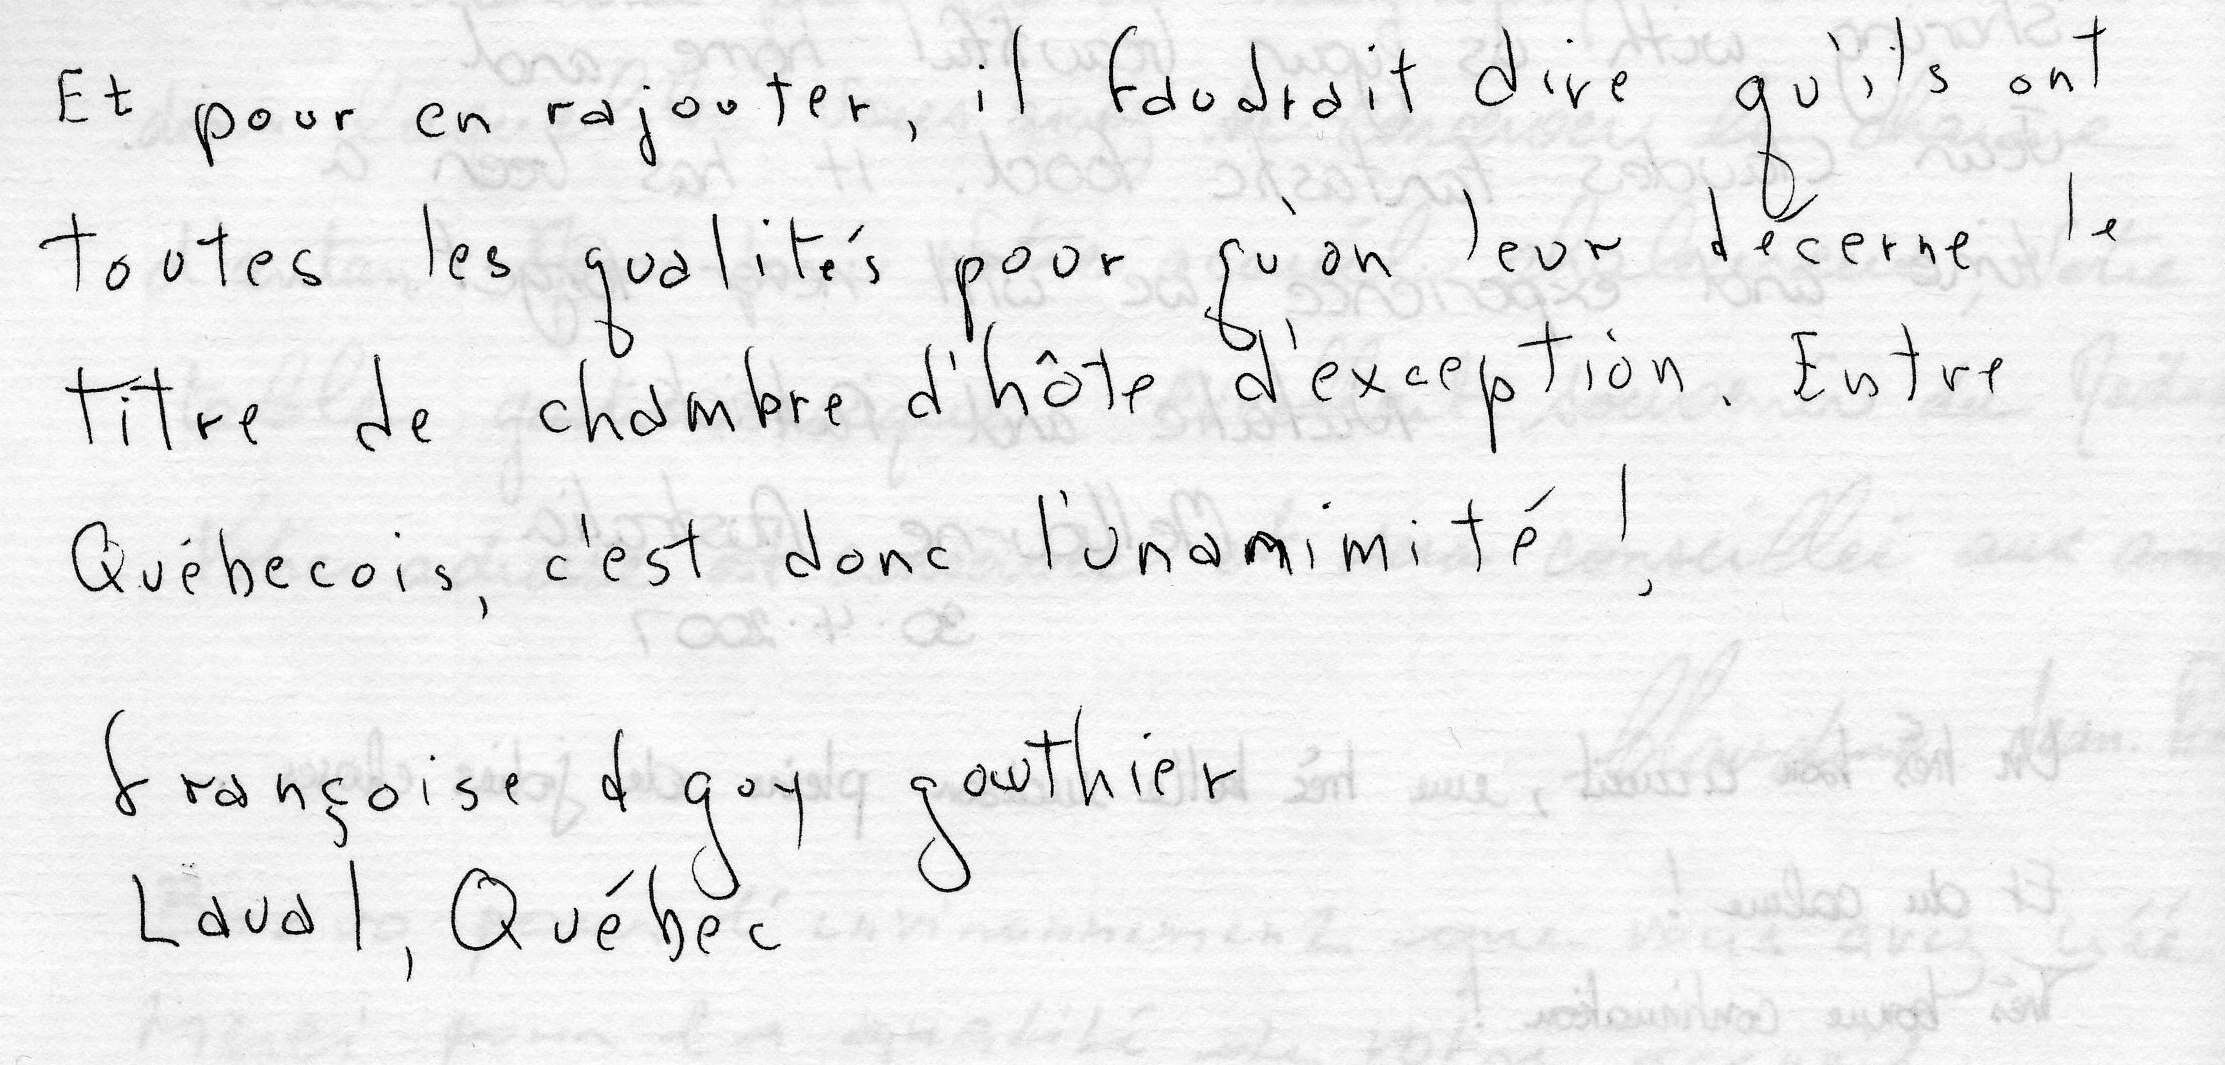 Et pour en rajouter, il faudrait dire qu'ils ont
toutes les qualités pour qu'on leur décerne le
titre de chambre d'hôte d'exception. Entre
Québecois, c'est donc l'unamimité !
françoise & guy gauthier
Laval, Québec